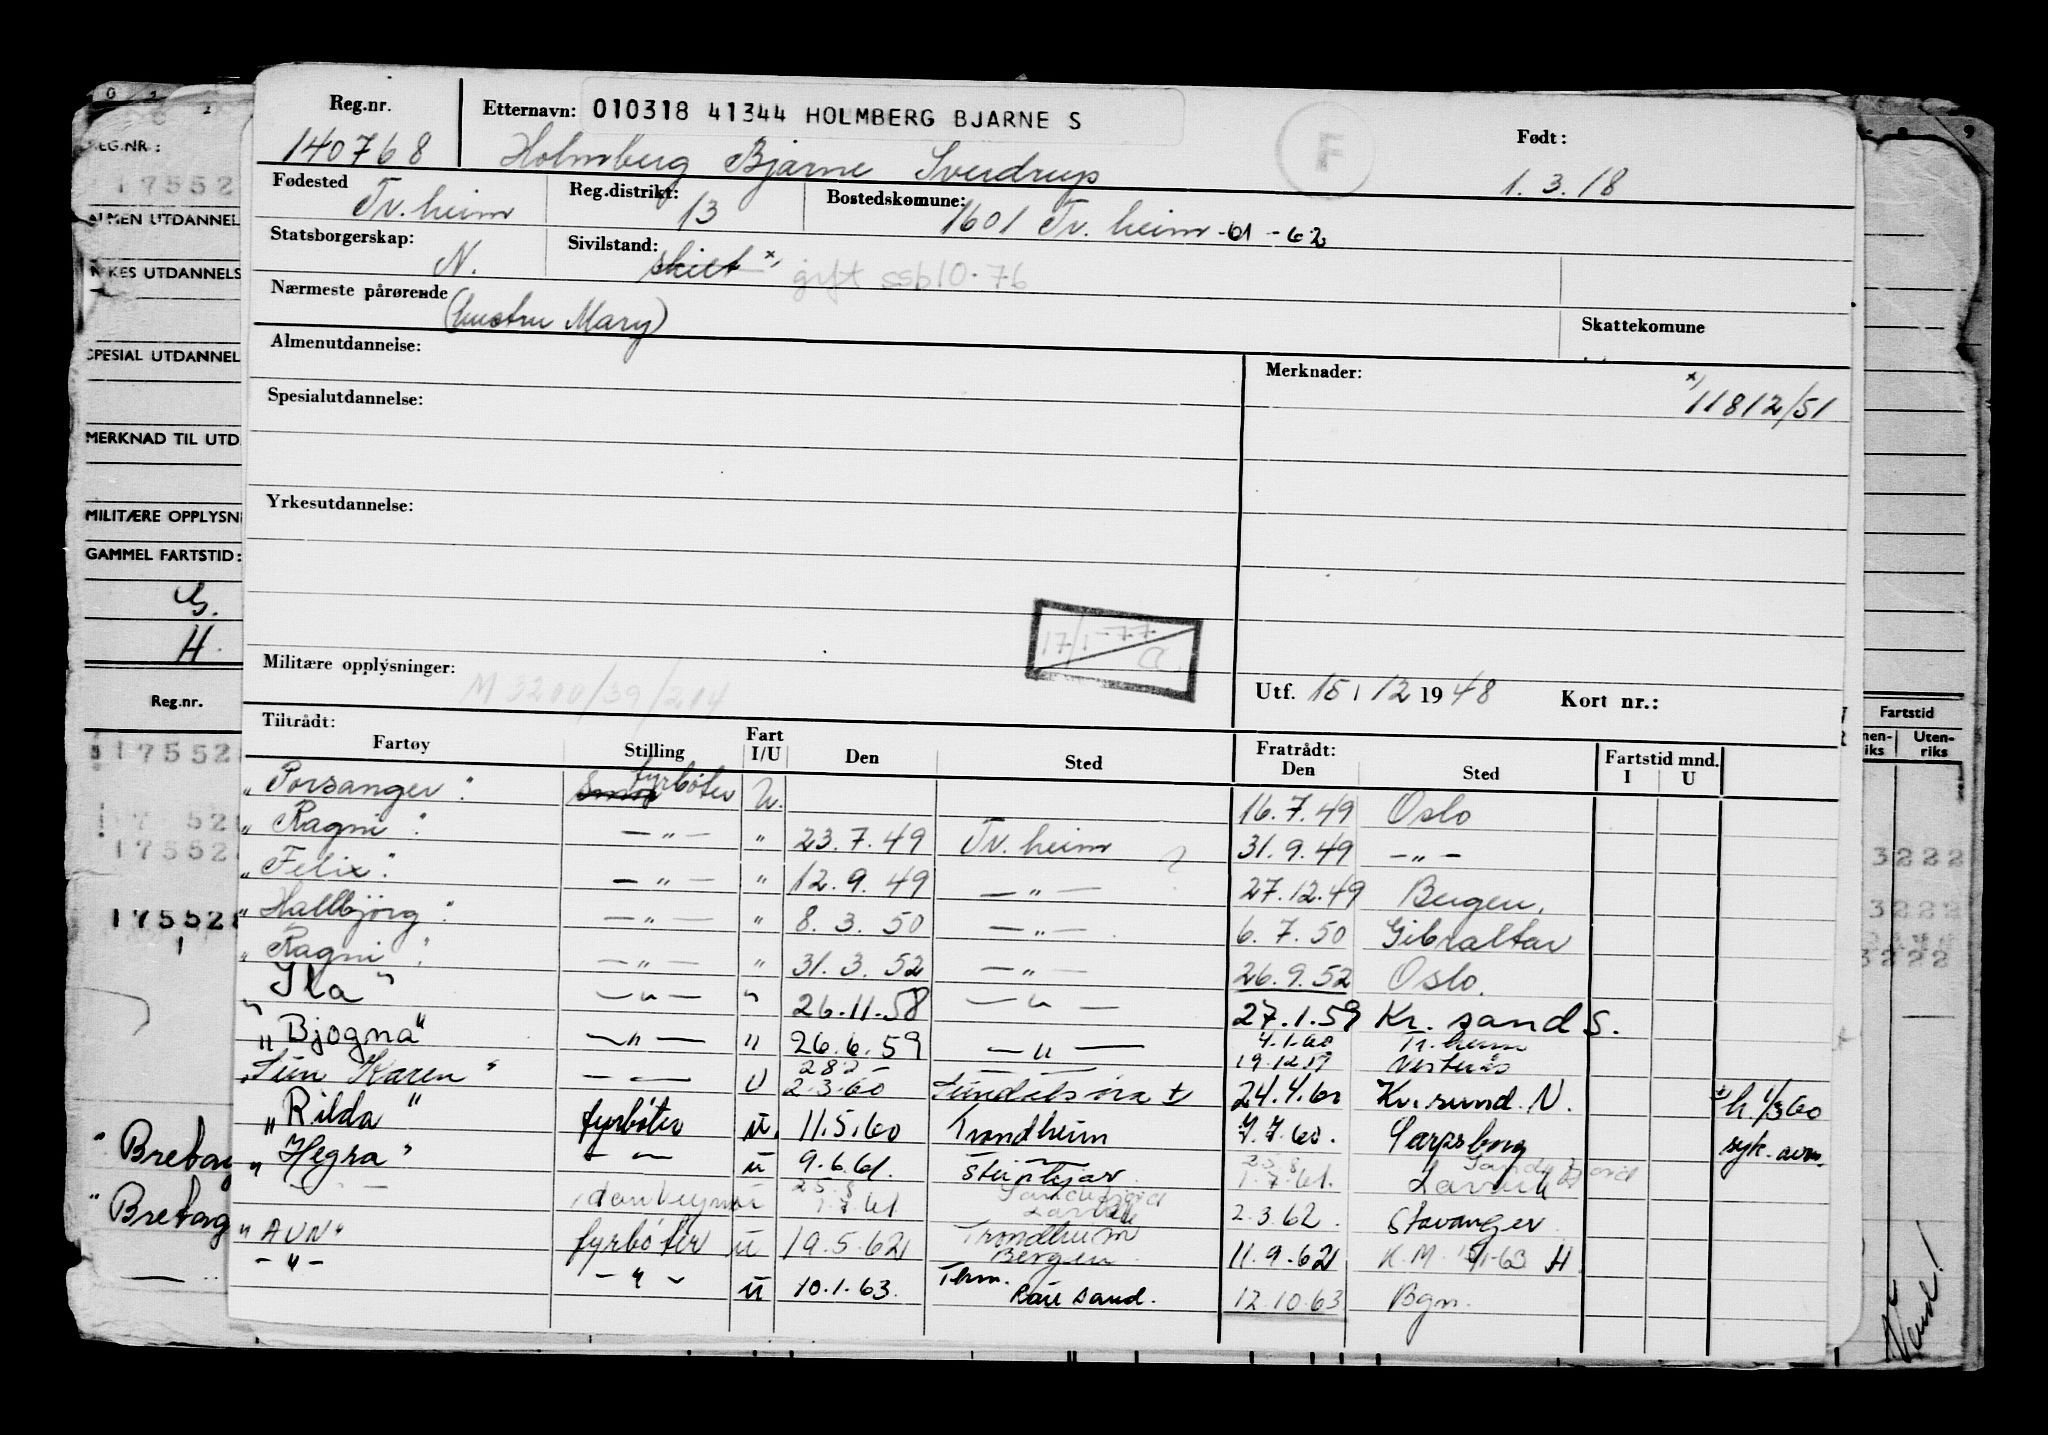 Reg.nr.
140768
Etternavn: 010318 41344 HOLMBERG BJARNE S
Holmberg Bjarne Sverdrup
F
Født:
1. 3. 18
Fødested
Tr. heim
Reg.distrikt:
13
Bostedskomune:
1601 Tr. heim -61 - 62
Statsborgerskap:
N.
Sivilstand:
skilt x) gift ssb10-76
Nærmeste pårørende
(hustru Mary)
Skattekomune
Almenutdannelse:
Merknader:
x) 11812/51
Spesialutdannelse:
Yrkesutdannelse:
17/1-77
Militære opplysninger:
M 3200/39/214
Utf. 15/12 1948 Kort nr.:
Tiltrådt:
Fartøy Stilling Fart I/U Den Sted
Fratrådt: Den Sted Fartstid mnd. I U
"Porsanger" fyrbøter U. 16.7.49 Oslo
"Ragni" — " — " 23.7.49 Tr. heim 31.9.49 — " —
"Felix" — " — " 12.9.49 — " — 27.12.49 Bergen.
"Hallbjörg" — " — " 8.3.50 — " — 6.7.50 Gibraltar
"Ragni" — " — " 31.3.52 — " — 26.9.52 Oslo.
"Ila" — " — " 26.11.58 — " — 27.1.59 Kr. sand S.
"Bjogna" — " — " 26.6.59 — " — 4.1.60 Tr. heim
19.12.59 Vesterås
282
Karen" — — U 2.3.60 Sundalsöra ± 24.4.60 Kr. sund. N. ± h. 1/3 60
"Rilda" fyrbøter U. 11.5.60 Trondheim 7.7.60. Sarpsborg syk. avm.
"Hegra" — — U 9.6.61. Steinkjer 1.7.61. Larvik
25.8 Sandefjord
— — 1.7.61 Larvik 2.3.62. Stavanger
"AUN" fyrbøter U 19.5.62 Trondheim Bergen 11.9.62 K.M. H
— " — — " — U 10.1.63. Thm. Råe sand. 12.10.63 Bgn.
REG.NR.:
17552
ALMEN UTDANNEL
YRKES UTDANNELS
SPESIAL UTDANNEL
MERKNAD TIL UTD
MILITÆRE OPPLYSNI
GAMMEL FARTSTID:
G.
H.
Reg.nr.
17552
17 52
17552
175528
1
"Bretag
"Bretag
Fartstid
Uten-
riks
3222
3222
3222
Vend!